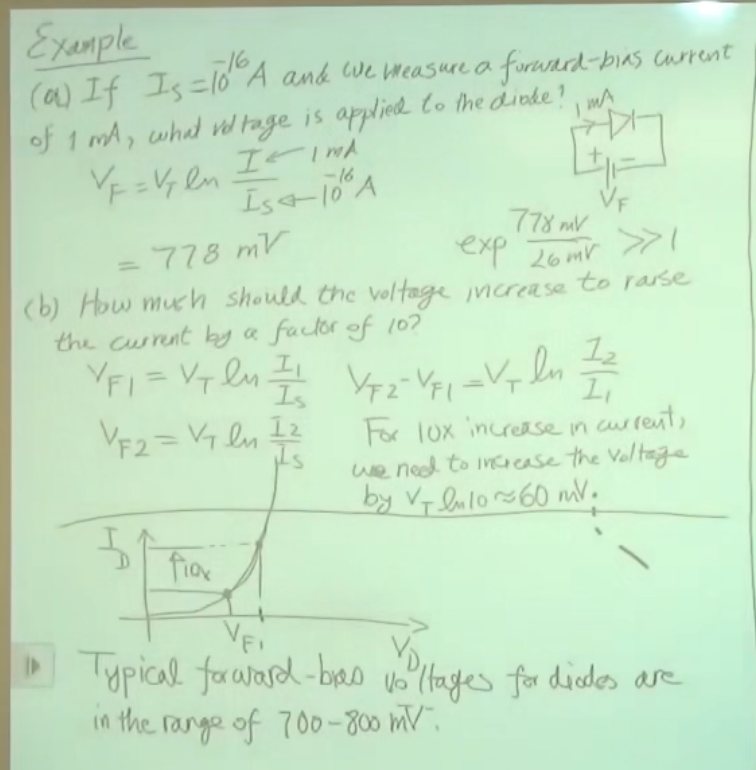 Example
(a) If I_S = 10^-16 A and we measure a forward-bias current
of 1 mA, what voltage is applied to the diode?
1 mA
V_F = V_T ln I/I_S ← 1 mA ← 10^-16 A
+ -
V_F
= 778 mV
exp 778 mV / 26 mV >> 1
(b) How much should the voltage increase to raise
the current by a factor of 10?
V_F1 = V_T ln I_1/I_S
V_F2 = V_T ln I_2/I_S
V_F2 - V_F1 = V_T ln I_2/I_1
For 10x increase in current,
we need to increase the voltage
by V_T ln 10 ≈ 60 mV.
I_D
↑10x
V_F1
V_D
Typical forward-bias voltages for diodes are
in the range of 700-800 mV.